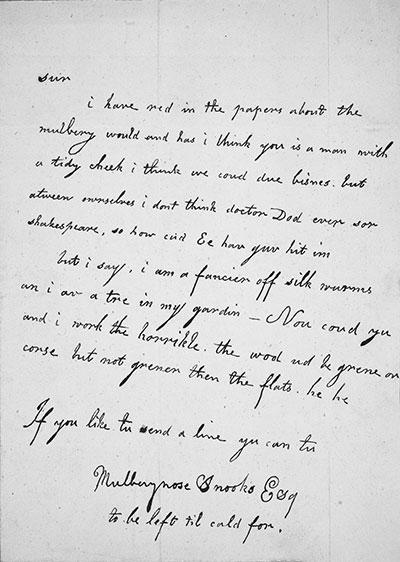 sur
i have red in the papers about the
mulbery would and has i think you is a man with
a tidy cheek i think we coud due bisnes. but
atween ourselves i dont think doctor Dod ever sor
shakespeare, so how cud Ee hav guv hit im
but i say, i am a fancier off silk wurms
an i av a tre in my gardin — Nou coud yu
and i work the horrikle. the wod ud be grene on
corse but not grener then the flats. he he
If you like tu send a line yu can tu
Mulberynose Snooks Esq
to be left til cald for.